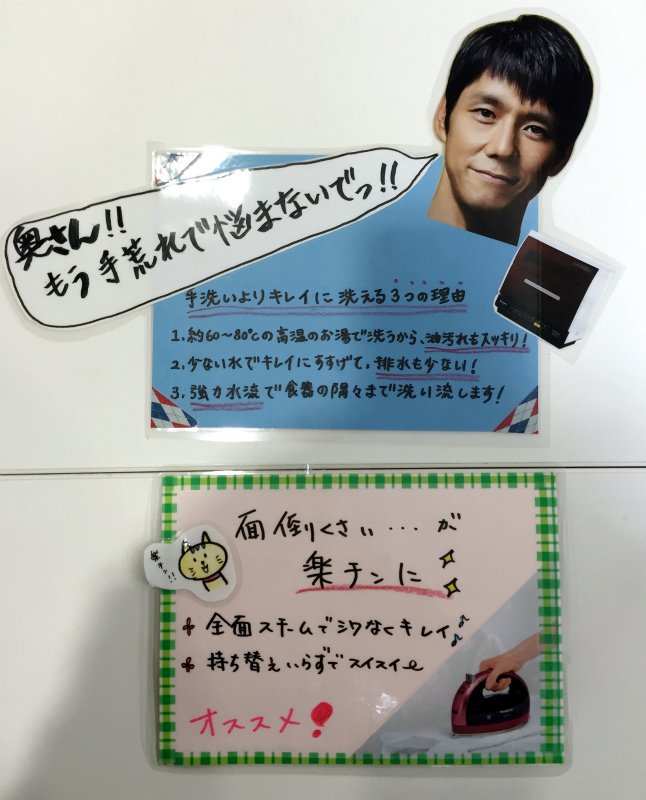 奥さん!!
もう手荒れで悩まないでっ!!
手洗いよりキレイに洗える3つの理由
1.約60〜80℃の高温のお湯で洗うから、油汚れもスッキリ!
2.少ない水でキレイにすすげて、排水も少ない!
3.強力水流で食器の隅々まで洗い流します!
面倒くさい・・・が
楽チンに
楽チン!!
全面スチームでシワなくキレイ♪
持ち替えいらずでスイスイ〜
オススメ!